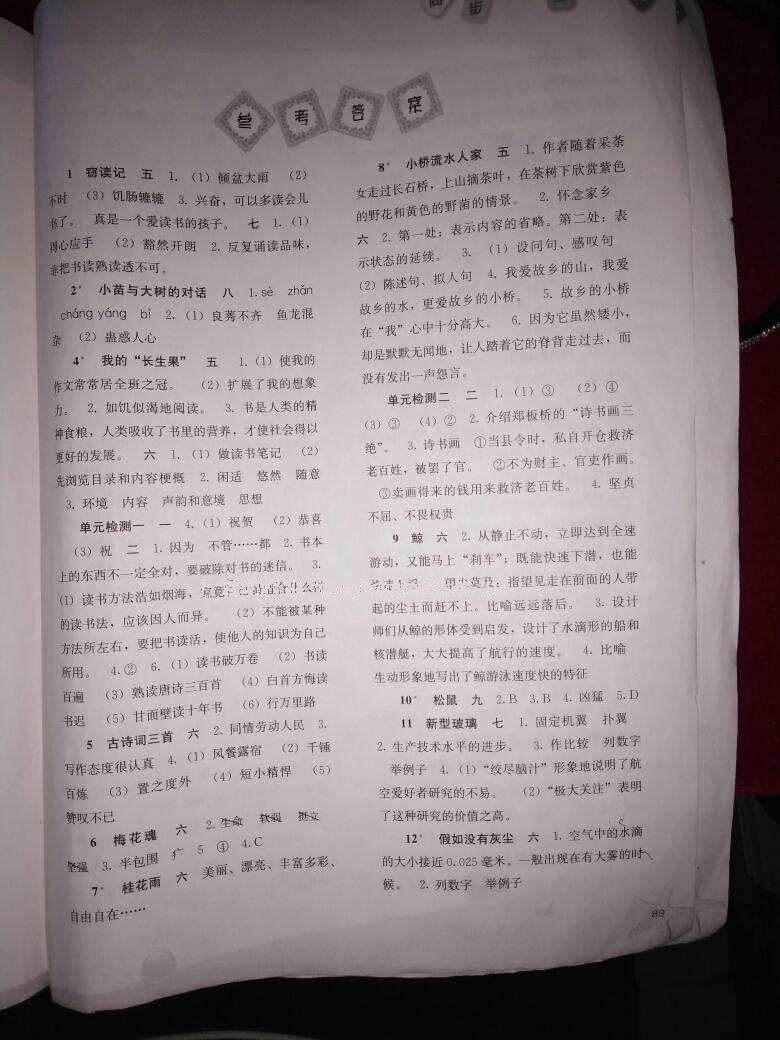 同步
参考答案
1 窃读记 五 1.（1）倾盆大雨 （2）
不时 （3）饥肠辘辘 3. 兴奋，可以多读会儿
书了。 真是一个爱读书的孩子。 七 1.（1）
得心应手 （2）豁然开朗 2. 反复诵读品味，
非把书读熟读透不可。
2* 小苗与大树的对话 八 1. sè zhān
cháng yáng bì 2.（1）良莠不齐 鱼龙混
杂 （2）蛊惑人心
4* 我的“长生果” 五 1.（1）使我的
作文常常居全班之冠。 （2）扩展了我的想象
力。 2. 如饥似渴地阅读。 3. 书是人类的精
神食粮，人类吸收了书里的营养，才使社会得以
更好的发展。 六 1.（1）做读书笔记 （2）
先浏览目录和内容梗概 2. 闲适 悠然 随意
3. 环境 内容 声韵和意境 思想
单元检测一 一 4.（1）祝贺 （2）恭喜
（3）祝 二 1. 因为 不管……都 2. 书本
上的东西不一定全对，要破除对书的迷信。 3.
（1）读书方法浩如烟海，究竟
的读书法，应该因人而异。 （2）不能被某种
方法所左右，要把书读活，使他人的知识为自己
所用。 4.② 6.（1）读书破万卷 （2）书读
百遍 （3）熟读唐诗三百首 （4）白首方悔读
书迟 （5）甘面壁读十年书 （6）行万里路
5 古诗词三首 六 2. 同情劳动人民 3.
写作态度很认真 4.（1）风餐露宿 （2）千锤
百炼 （3）置之度外 （4）短小精悍 （5）
赞叹不已
6 梅花魂 六 2. 生命 软弱 挺立
坚强 3. 半包围 疒 5 ④ 4. C
7* 桂花雨 六 美丽、漂亮、丰富多彩、
自由自在……
8* 小桥流水人家 五 1. 作者随着采茶
女走过长石桥，上山摘茶叶，在茶树下欣赏紫色
的野花和黄色的野菌的情景。 2. 怀念家乡
六 2. 第一处：表示内容的省略。第二处：表
示状态的延续。 3. （1）设问句、感叹句
（2）陈述句、拟人句 4. 我爱故乡的山，我爱
故乡的水，更爱故乡的小桥。 5. 故乡的小桥
在“我”心中十分高大。 6. 因为它虽然矮小，
却是默默无闻地，让人踏着它的脊背走过去，而
没有发出一声怨言。
单元检测二 二 1.（1）③ （2）④
（3）③ （4）② 2. 介绍郑板桥的“诗书画三
绝”。 3. 诗书画 ①当县令时，私自开仓救济
老百姓，被罢了官。 ②不为财主、官吏作画。
③卖画得来的钱用来救济老百姓。 4. 坚贞
不屈、不畏权贵
9 鲸 六 2. 从静止不动，立即达到全速
游动，又能马上“刹车”；既能快速下潜，也能
望尘莫及：指望见走在前面的人带
起的尘土而赶不上。比喻远远落后。 3. 设计
师们从鲸的形体受到启发，设计了水滴形的船和
核潜艇，大大提高了航行的速度。 4. 比喻
生动形象地写出了鲸游泳速度快的特征
10* 松鼠 九 2. B 3. B 4. 凶猛 5. D
11 新型玻璃 七 1. 固定机翼 扑翼
2. 生产技术水平的进步。 3. 作比较 列数字
举例子 4.（1）“绞尽脑汁”形象地说明了航
空爱好者研究的不易。 （2）“极大关注”表明
了这种研究的价值之高。
12* 假如没有灰尘 六 1. 空气中的水滴
的大小接近 0.025 毫米。一般出现在有大雾的时
候。 2. 列数字 举例子
89